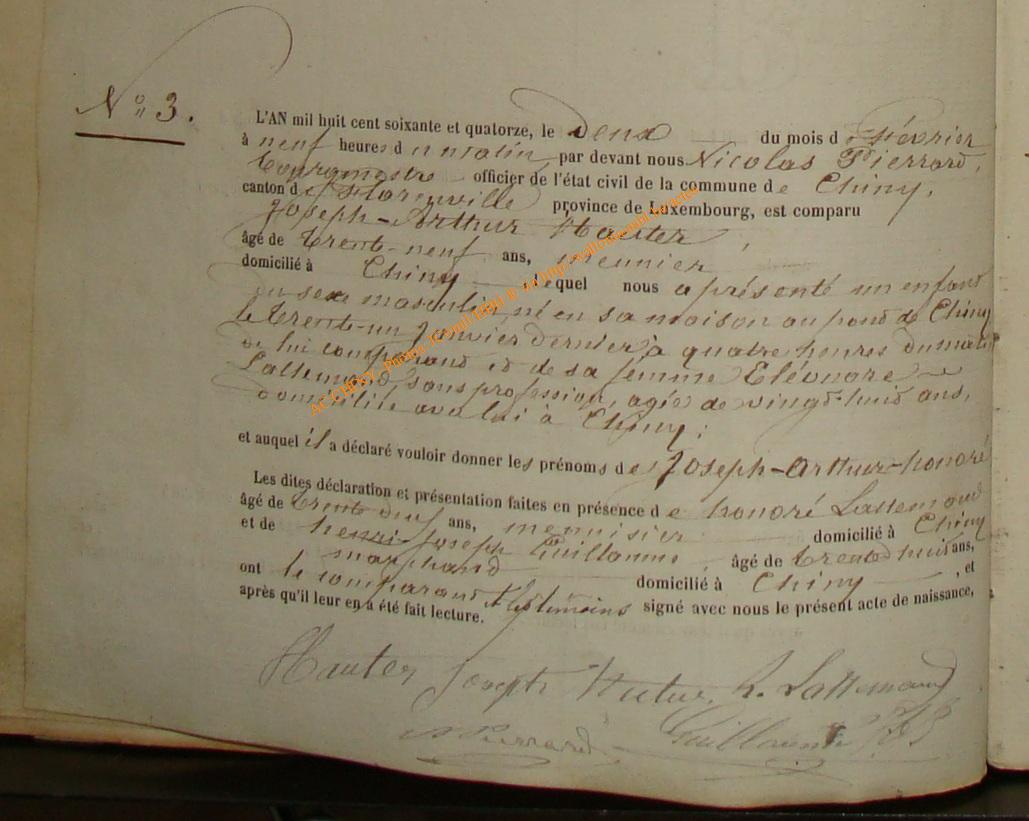 N° 3.
L'AN mil huit cent soixante et quatorze, le Deux du mois de février
à neuf heures du matin par devant nous Nicolas Pierrard,
bourgmestre officier de l'état civil de la commune de Chiny,
canton de Florenville province de Luxembourg, est comparu
Joseph-Arthur Hauter,
âgé de trente-neuf ans, meunier
domicilié à Chiny lequel nous a présenté un enfant
du sexe masculin, né en sa maison au pond de Chiny
le trente-un janvier dernier à quatre heures du matin
de lui comparant et de sa femme Eléonore
Lallemand, sans profession, agée de vingt-huit ans,
domiciliée avec lui à Chiny;
et auquel il a déclaré vouloir donner les prénoms de Joseph-Arthur-honoré
Les dites déclaration et présentation faites en présence de honoré Lallemand
âgé de trente ans, menuisier domicilié à Chiny
et de henri-Joseph Guillaume, âgé de trente huit ans,
marchand domicilié à Chiny, et
ont le comparant & les témoins signé avec nous le présent acte de naissance,
après qu'il leur en a été fait lecture.
Hauter Joseph h. Lallemand
N Pierrard Guillaume
AC CHINY